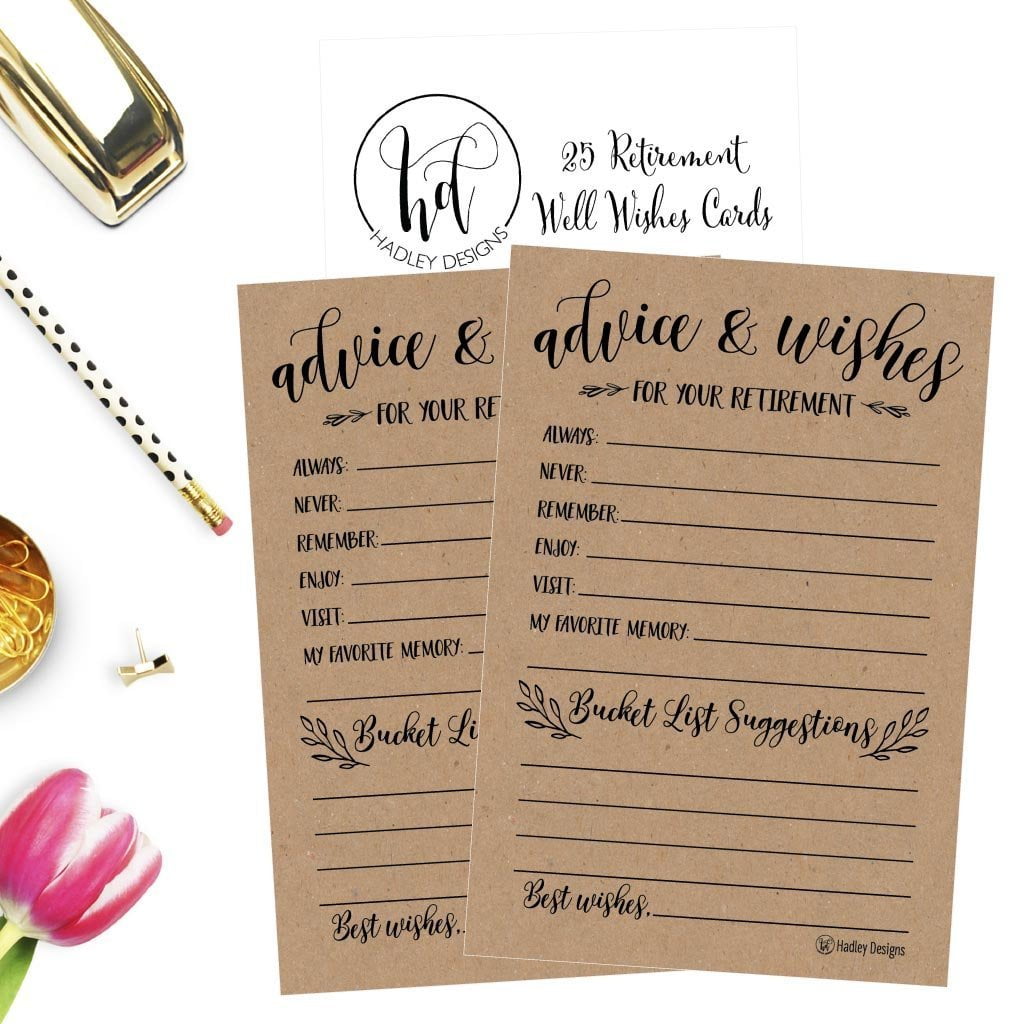 hd
HADLEY DESIGNS
25 Retirement
Well Wishes Cards
advice &
FOR YOUR RE
ALWAYS:
NEVER:
REMEMBER:
ENJOY:
VISIT:
MY FAVORITE MEMORY:
Bucket Li
Best wishes,
advice & wishes
FOR YOUR RETIREMENT
ALWAYS:
NEVER:
REMEMBER:
ENJOY:
VISIT:
MY FAVORITE MEMORY:
Bucket List Suggestions
Best wishes,
hd Hadley Designs